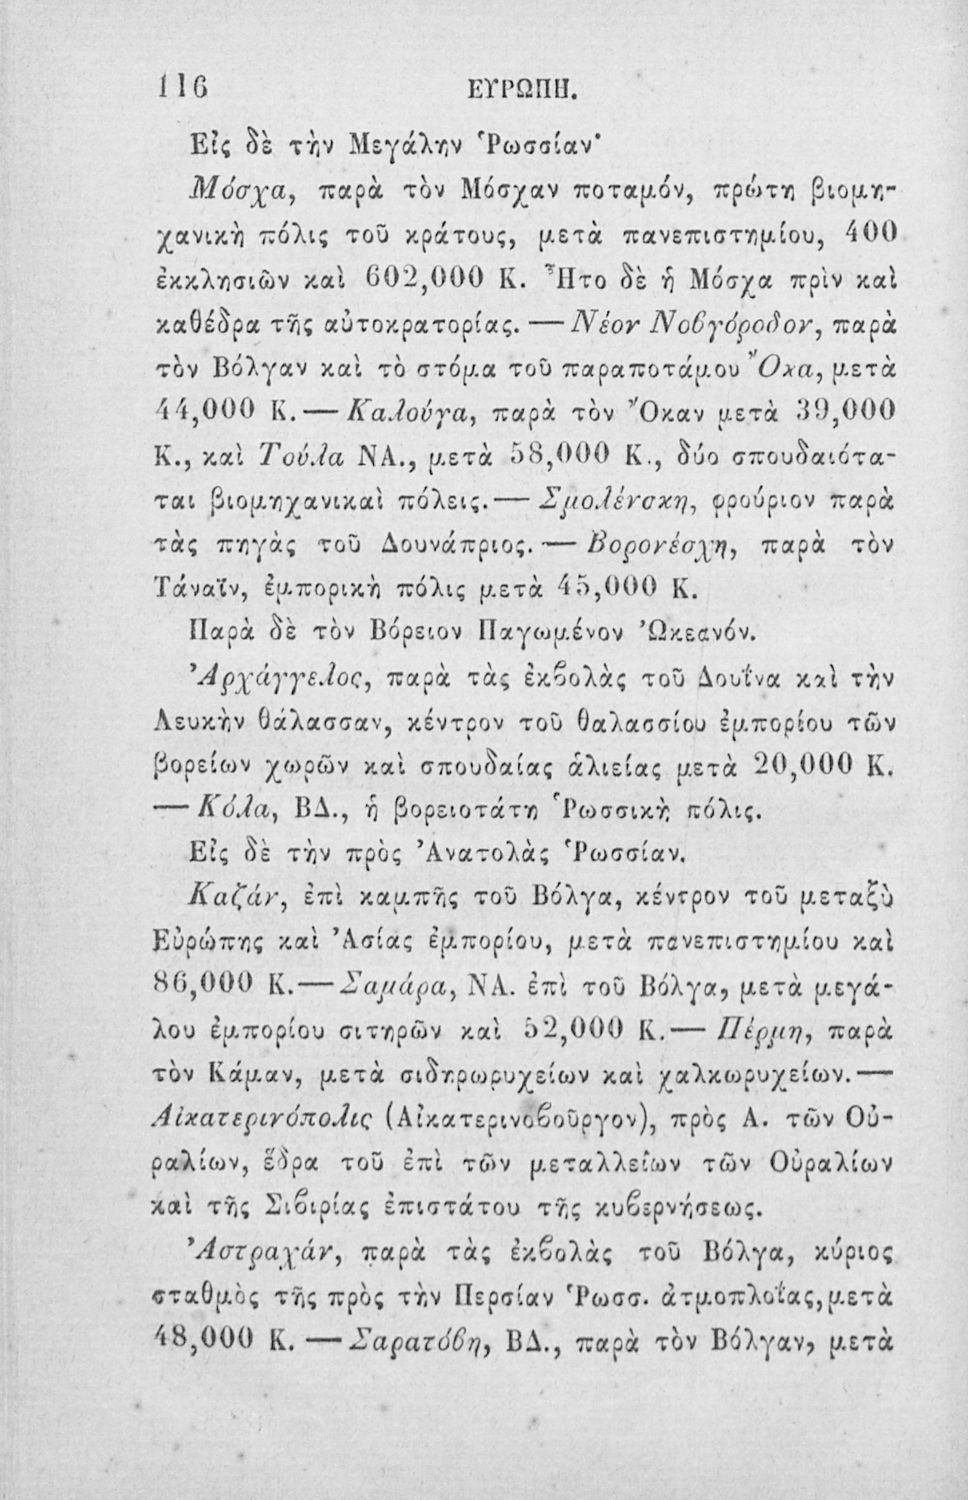 116 ΕΥΡΩΠΗ.
Εἰς δὲ τὴν Μεγάλην Ῥωσσίαν·
Μόσχα, παρὰ τὸν Μόσχαν ποταμόν, πρώτη βιομη-
χανικὴ πόλις τοῦ κράτους, μετὰ πανεπιστημίου, 400
ἐκκλησιῶν καὶ 602,000 Κ. Ἦτο δὲ ἡ Μόσχα πρὶν καὶ
καθέδρα τῆς αὐτοκρατορίας. — Νέον Νοβγόροδον, παρὰ
τὸν Βόλγαν καὶ τὸ στόμα τοῦ παραποτάμου Ὄκα, μετὰ
44,000 Κ. — Καλούγα, παρὰ τὸν Ὄκαν μετὰ 39,000
Κ., καὶ Τούλα ΝΑ., μετὰ 58,000 Κ., δύο σπουδαιότα-
ται βιομηχανικαὶ πόλεις. — Σμολένσκη, φρούριον παρὰ
τὰς πηγὰς τοῦ Δουνάπριος. — Βορονέσχη, παρὰ τὸν
Τάναϊν, ἐμπορικὴ πόλις μετὰ 45,000 Κ.
Παρὰ δὲ τὸν Βόρειον Παγωμένον Ὠκεανόν.
Ἀρχάγγελος, παρὰ τὰς ἐκβολὰς τοῦ Δουΐνα καὶ τὴν
Λευκὴν θάλασσαν, κέντρον τοῦ θαλασσίου ἐμπορίου τῶν
βορείων χωρῶν καὶ σπουδαίας ἁλιείας μετὰ 20,000 Κ.
— Κόλα, ΒΔ., ἡ βορειοτάτη Ῥωσσικὴ πόλις.
Εἰς δὲ τὴν πρὸς Ἀνατολὰς Ῥωσσίαν.
Καζάν, ἐπὶ καμπῆς τοῦ Βόλγα, κέντρον τοῦ μεταξὺ
Εὐρώπης καὶ Ἀσίας ἐμπορίου, μετὰ πανεπιστημίου καὶ
86,000 Κ. — Σαμάρα, ΝΑ. ἐπὶ τοῦ Βόλγα, μετὰ μεγά-
λου ἐμπορίου σιτηρῶν καὶ 52,000 Κ. — Πέρμη, παρὰ
τὸν Κάμαν, μετὰ σιδηρωρυχείων καὶ χαλκωρυχείων. —
Αἰκατερινόπολις (Αἰκατερινοβοῦργον), πρὸς Α. τῶν Οὐ-
ραλίων, ἕδρα τοῦ ἐπὶ τῶν μεταλλείων τῶν Οὐραλίων
καὶ τῆς Σιβιρίας ἐπιστάτου τῆς κυβερνήσεως.
Ἀστραχάν, παρὰ τὰς ἐκβολὰς τοῦ Βόλγα, κύριος
σταθμὸς τῆς πρὸς τὴν Περσίαν Ῥωσσ. ἀτμοπλοΐας, μετὰ
48,000 Κ. — Σαρατόβη, ΒΔ., παρὰ τὸν Βόλγαν, μετὰ